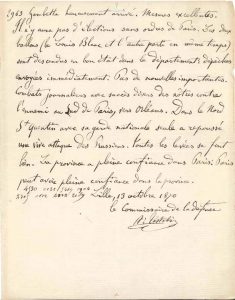 Gambetta heureusement arrivé. Mesures excellentes.
Il n'y aura pas d'élections sans ordres de Paris. Les deux
ballons (le Louis Blanc et l'autre parti en même temps)
sont descendus en bon état dans le département dépêches
envoyées immédiatement. Pas de nouvelles importantes.
Combats journaliers avec succès dans des nôtres contre
l'ennemi au Sud de Paris, vers Orléans. Dans le Nord
St Quentin avec sa garde nationale seule a repoussé
une vive attaque des Prussiens. Toutes les levées se font
bien. La province a pleine confiance dans Paris. Paris
peut avoir pleine confiance dans la province.
Lille, 13 octobre 1870
Le Commissaire de la défense